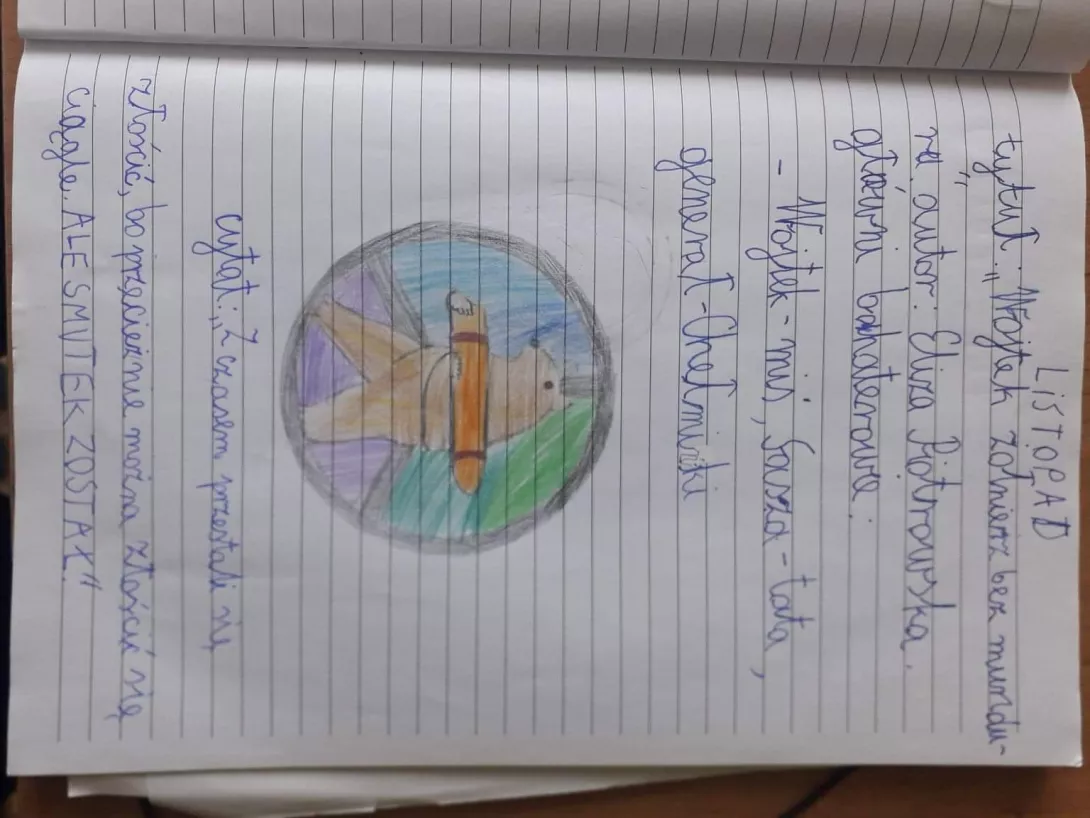 LiSTOPAD
tytuł: „Wojtek żołnierz bez mundu-
ru" autor: Eliza Piotrowska.
główni bohaterowie:
- Wojtek-miś, Sasza-tata,
generał-Chełmiński
cytat: „Z czasem przestali się
złościć, bo przecież nie można złościć się
ciągle. ALE SMUTEK ZOSTAŁ."